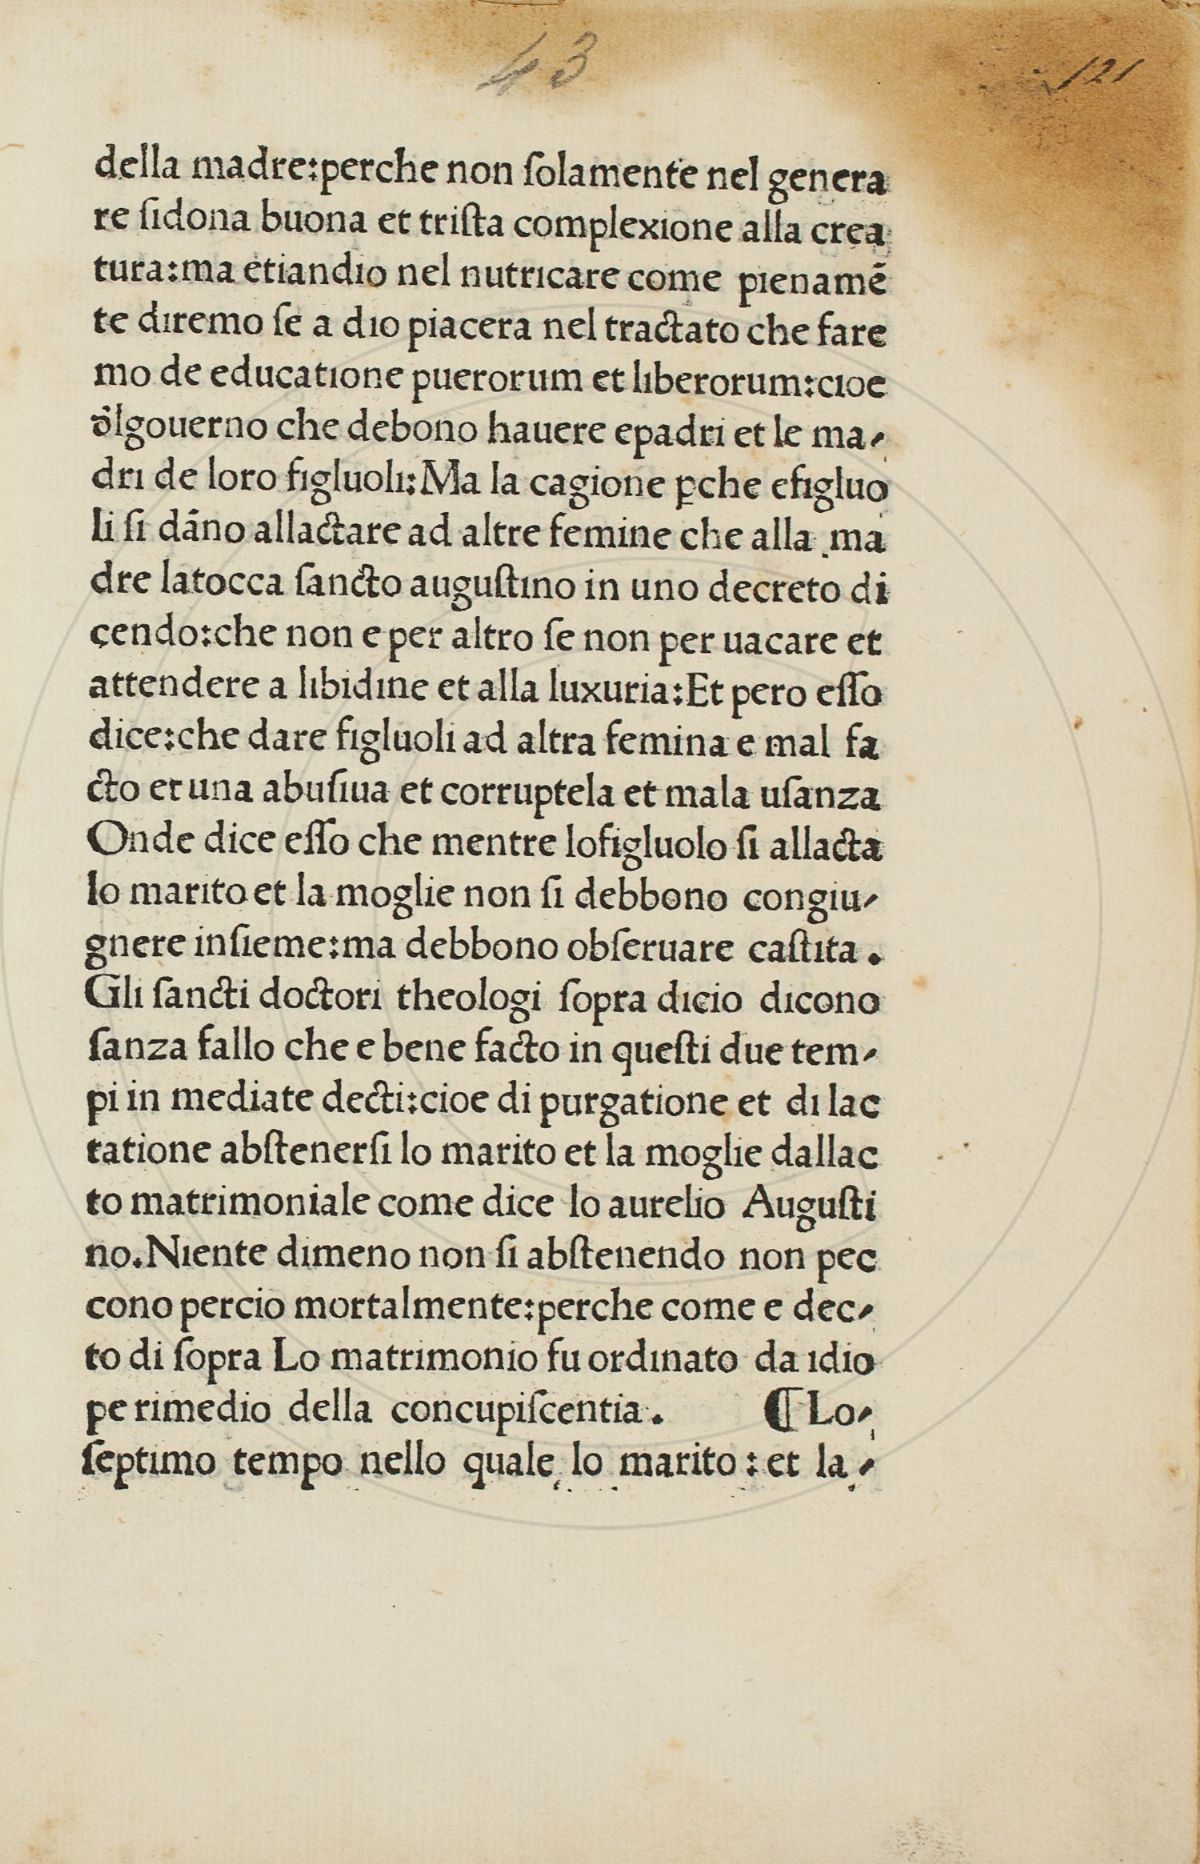 43
121
della madre:perche non ſolamente nel genera
re ſidona buona et triſta complexione alla crea
tura:ma etiandio nel nutricare come pienamē
te diremo ſe a dio piacera nel tractato che fare
mo de educatione puerorum et liberorum:cioe
ďlgouerno che debono hauere epadri et le ma⸗
dri de loro figluoli:Ma la cagione ꝑche efigluo
li ſi dāno allactare ad altre femine che alla ma
dre latocca ſancto auguſtino in uno decreto di
cendo:che non e per altro ſe non per uacare et
attendere a libidine et alla luxuria:Et pero eſſo
dice:che dare figluoli ad altra femina e mal fa
cto et una abuſiua et corruptela et mala uſanza
Onde dice eſſo che mentre lofigluolo ſi allacta
lo marito et la moglie non ſi debbono congiu⸗
gnere inſieme:ma debbono obſeruare caſtita.
Gli ſancti doctori theologi ſopra dicio dicono
ſanza fallo che e bene facto in queſti due tem⸗
pi in mediate decti:cioe di purgatione et di lac
tatione abſtenerſi lo marito et la moglie dallac
to matrimoniale come dice lo aurelio Auguſti
no.Niente dimeno non ſi abſtenendo non pec
cono percio mortalmente:perche come e dec⸗
to di ſopra Lo matrimonio fu ordinato da idio
pe rimedio della concupiſcentia. ¶ Lo⸗
ſeptimo tempo nello quale lo marito : et la⸗